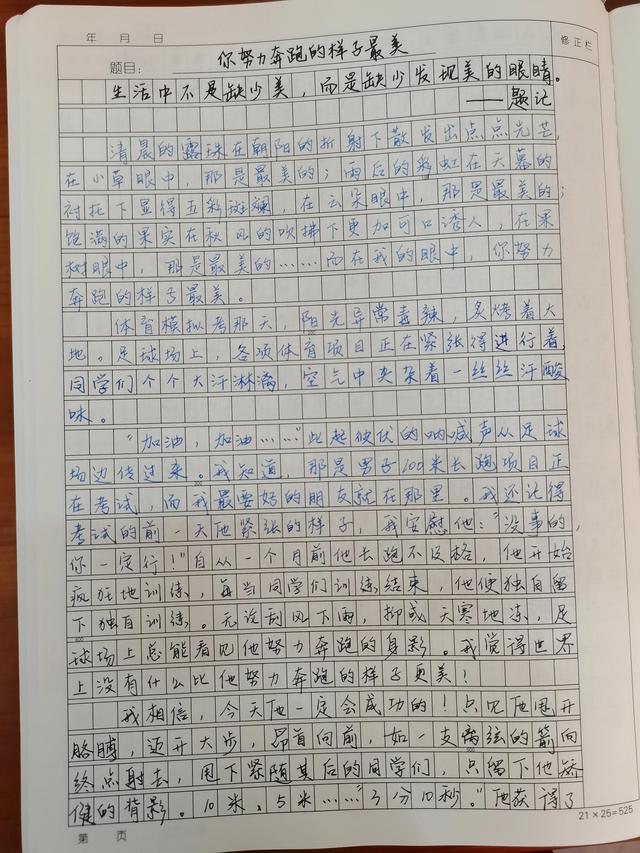 年 月 日
修正栏
题目： 你努力奔跑的样子最美
生活中不是缺少美，而是缺少发现美的眼睛。
——题记
清晨的露珠在朝阳的折射下散发出点点光芒，
在小草眼中，那是最美的；雨后的彩虹在天幕的
衬托下显得五彩斑斓，在云朵眼中，那是最美的；
饱满的果实在秋风的吹拂下更加可口诱人，在果
树眼中，那是最美的……而在我的眼中，你努力
奔跑的样子最美。
体育模拟考那天，阳光异常毒辣，炙烤着大
地。足球场上，各项体育项目正在紧张得进行着，
同学们个个大汗淋漓，空气中夹杂着一丝丝汗酸
味。
“加油，加油……”此起彼伏的呐喊声从足球
场边传过来。我知道，那是男子100米长跑项目正
在考试，而我最要好的朋友就在那里。我还记得
考试的前一天他紧张的样子，我安慰他：“没事的，
你一定行！”自从一个月前他长跑不及格，他开始
疯狂地训练，每当同学们训练结束，他便独自留
下独自训练。无论刮风下雨，抑或天寒地冻，足
球场上总能看见他努力奔跑的身影。我觉得世界
上没有什么比他努力奔跑的样子更美！
我相信，今天他一定会成功的！只见他甩开
胳膊，迈开大步，昂首向前，如一支离弦的箭向
终点射去，甩下紧随其后的同学们，只留下他矫
健的背影。10米、5米……“3分10秒。”他获得了
21×25=525
第 页